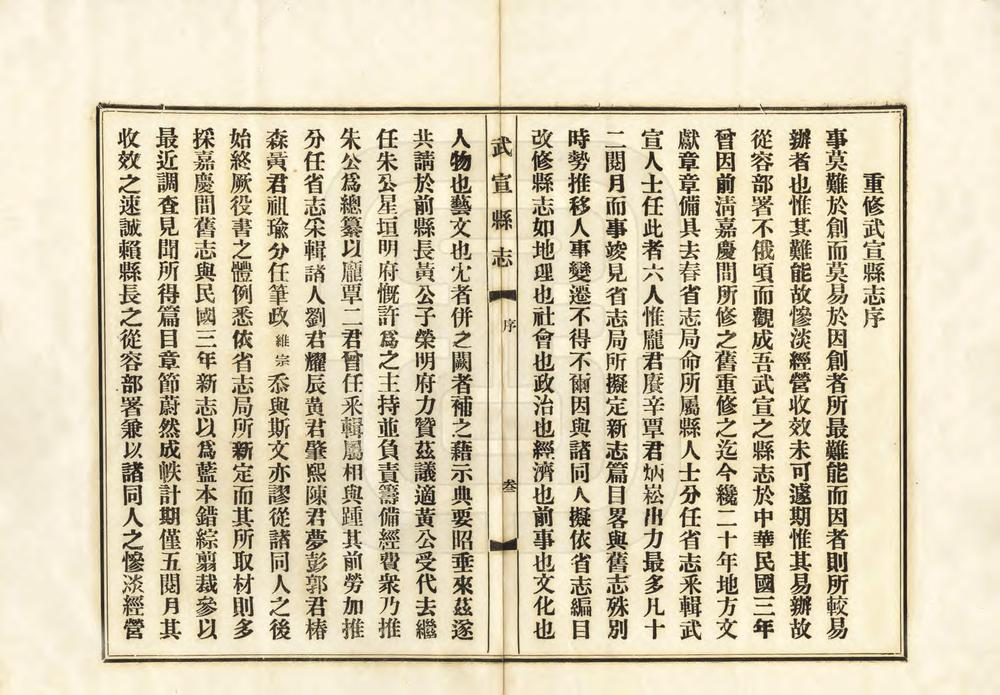 重修武宣縣志序
事莫難於創而莫易於因創者所最難能而因者則所較易
辦者也惟其難能故慘淡經營收效未可遽期惟其易辦故
從容部署不俄頃而觀成吾武宣之縣志於中華民國三年
曾因前淸嘉慶間所修之舊重修之迄今纔二十年地方文
獻章章備具去春省志局命所屬縣人士分任省志釆輯武
宣人士任此者六人惟龐君賡辛覃君炳崧出力最多凡十
二閱月而事竣見省志局所擬定新志篇目畧與舊志殊別
時勢推移人事變遷不得不爾因與諸同人擬依省志編目
改修縣志如地理也社會也政治也經濟也前事也文化也
武宣縣志
序
叁
人物也藝文也冘者併之闕者補之藉示典要昭垂來茲遂
共請於前縣長黃公子榮明府力贊茲議適黃公受代去繼
任朱公星垣明府慨許爲之主持並負責籌備經費衆乃推
朱公爲總纂以龐覃二君曾任釆輯屬相與踵其前勞加推
分任省志釆輯諸人劉君耀辰黃君肇熙陳君夢彭郭君椿
森黃君祖瑜分任筆政維宗忝與斯文亦謬從諸同人之後
始終厥役書之體例悉依省志局所新定而其所取材則多
採嘉慶間舊志與民國三年新志以爲藍本錯綜翦裁參以
最近調查見聞所得篇目章節蔚然成帙計期僅五閱月其
收效之速誠賴縣長之從容部署兼以諸同人之慘淡經營